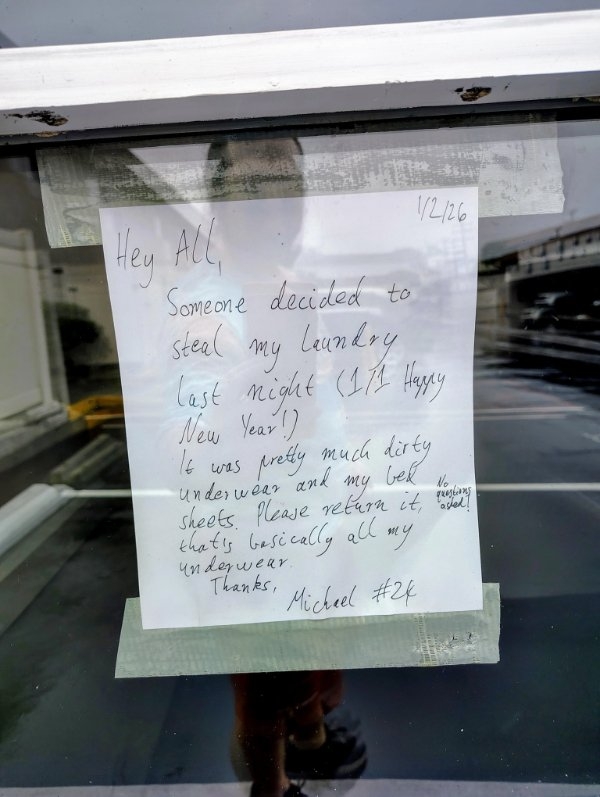 1/2/26
Hey All,
Someone decided to
steal my laundry
last night (1/1 Happy
New Year!)
It was pretty much dirty
underwear and my bed
sheets. Please return it,
No
questions
asked!
that's basically all my
underwear.
Thanks,
Michael #24